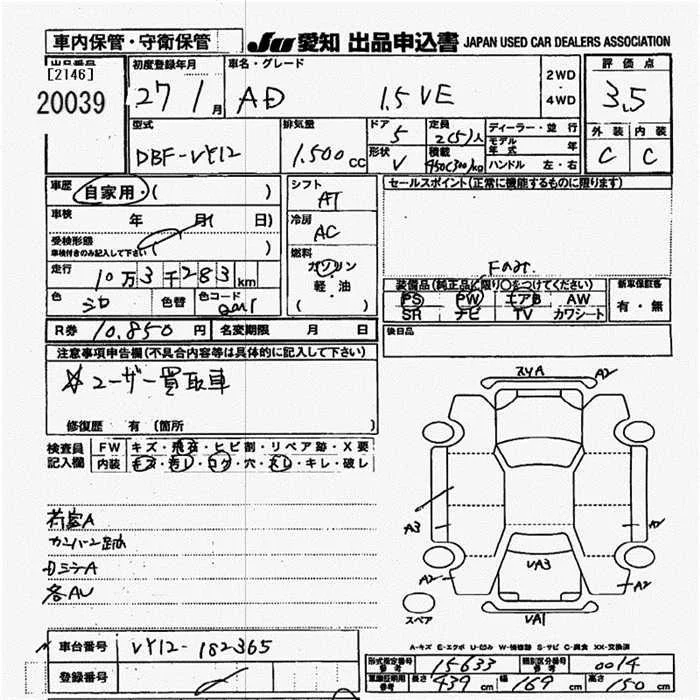 車内保管・守衛保管 Ju 愛知 出品申込書 JAPAN USED CAR DEALERS ASSOCIATION
出品番号 初度登録年月 車名・グレード 2WD ・ 4WD 評価点
[2146]
20039 27 1月 AD 1.5 VE 3.5
型式 排気量 ドア 5 定員 2(5)人 ディーラー・並行 外装 内装
DBF-VY12 1.500cc 形状 V 積載 450(300)kg モデル年式 年 C C
ハンドル 左・右
車歴 自家用・( ) シフト AT セールスポイント(正常に機能するものに限ります)
車検 年 月( 日) 冷房 AC
受検形態
車検付きのみ記入して下さい ( ) 燃料 ガソリン
走行 10万3千283km 軽・油 Fのみ.
色 シロ 色替 色コード ( ) 装備品(純正品に限り○をつけてください) 新車保証書
PS PW エアB AW 有・無
SR ナビ TV カワシート
R券 10.850円 名変期限 月 日 後日品
注意事項申告欄(不具合内容等は具体的に記入して下さい)
☆ユーザー買取車
修復歴 有(箇所 )
検査員記入欄 FW キズ・飛石・ヒビ割・リペア跡・X要
内装 キズ・汚レ・コゲ・穴・スレ・キレ・破レ
荷室A
各AU
A2
A3
A2
VA3
A2
A2
スペア VA1
A-キズ E-エクボ U-凹み W-補修跡 S-サビ C-腐食 XX-交換済
車台番号 VY12-182365 形式指定番号 参考 15633 類別区分番号 参考 0014
登録番号 車庫証明用 参考 長さ 439cm 幅 169cm 高さ 150cm